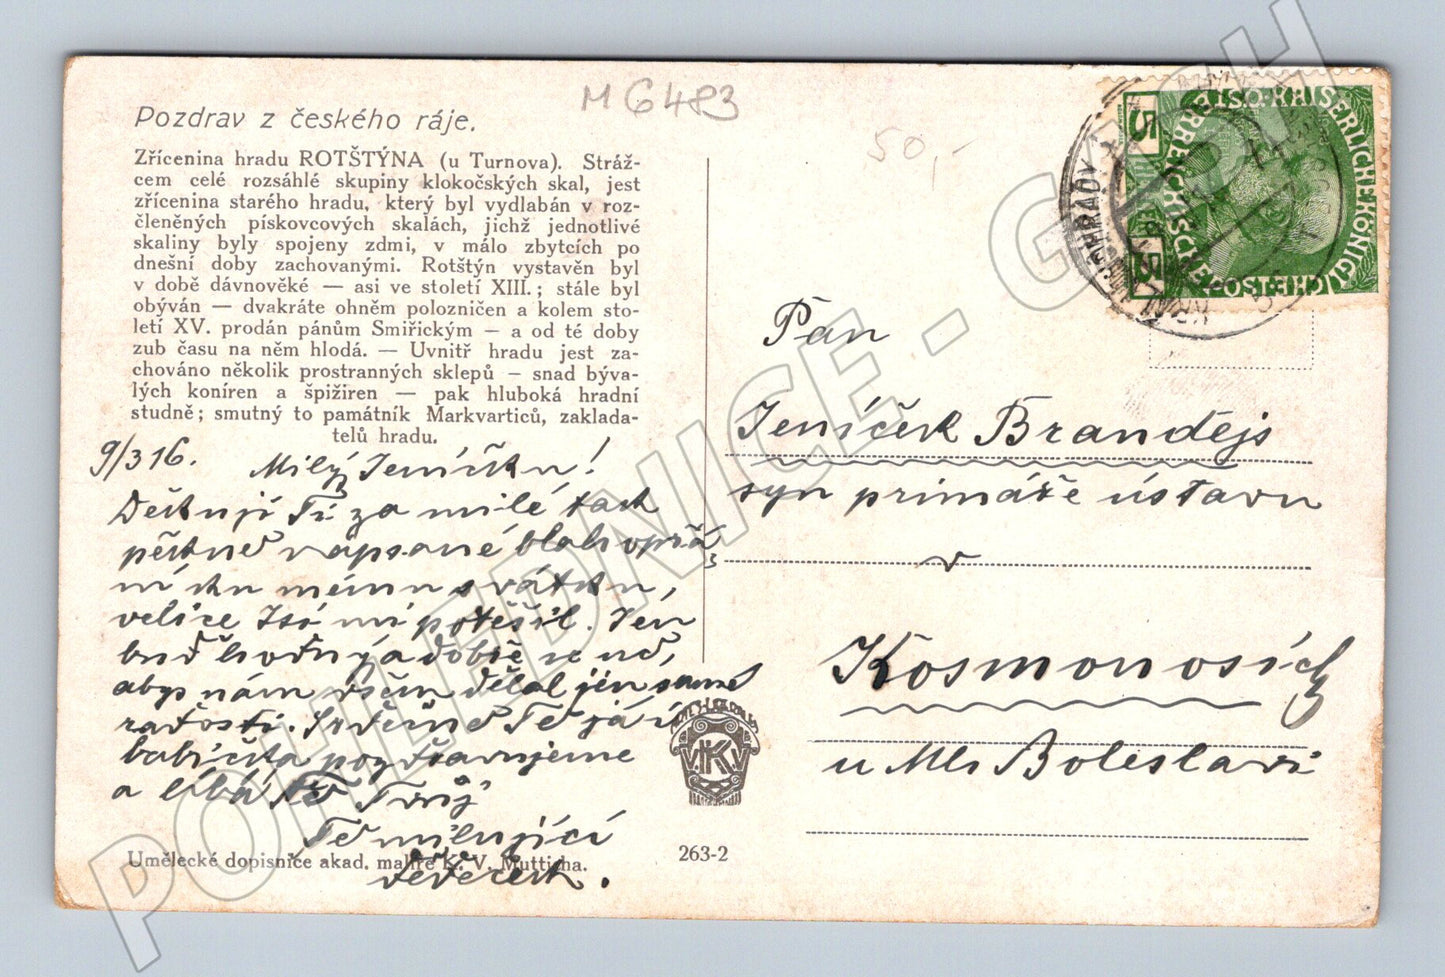 M 6483
50,-
Pozdrav z českého ráje.
Zřícenina hradu ROTŠTÝNA (u Turnova). Stráž-
cem celé rozsáhlé skupiny klokočských skal, jest
zřícenina starého hradu, který byl vydlabán v roz-
členěných pískovcových skalách, jichž jednotlivé
skaliny byly spojeny zdmi, v málo zbytcích po
dnešní doby zachovanými. Rotštýn vystavěn byl
v době dávnověké — asi ve století XIII.; stále byl
obýván — dvakráte ohněm polozničen a kolem sto-
letí XV. prodán pánům Smiřickým — a od té doby
zub času na něm hlodá. — Uvnitř hradu jest za-
chováno několik prostranných sklepů — snad býva-
lých koníren a špižiren — pak hluboká hradní
studně; smutný to památník Markvarticů, zaklada-
telů hradu.
9/3 16. Milý Jeníčku!
Děkuji Ti za milé tak
pěkně napsané blahopřá
níčko k mému svátku,
velice Jsi mi potěšil. Jen
buď hodný a dobře se uč,
abys nám všem dělal jen samé
radosti. Srdečně Tě já i
babička pozdravujeme
a líbá Tě Tvůj
Tě milující
dědeček.
Umělecké dopisnice akad. malíře K. V. Mutticha.
263-2
V.K.K.V.
Pan
Jeníček Brandejs
syn primáře ústavu
v
Kosmonosích
u Ml. Boleslavi
KAISERLICHE KÖNIGLICHE ÖSTERREICHISCHE POST
5
5
POHLEDNICE - G